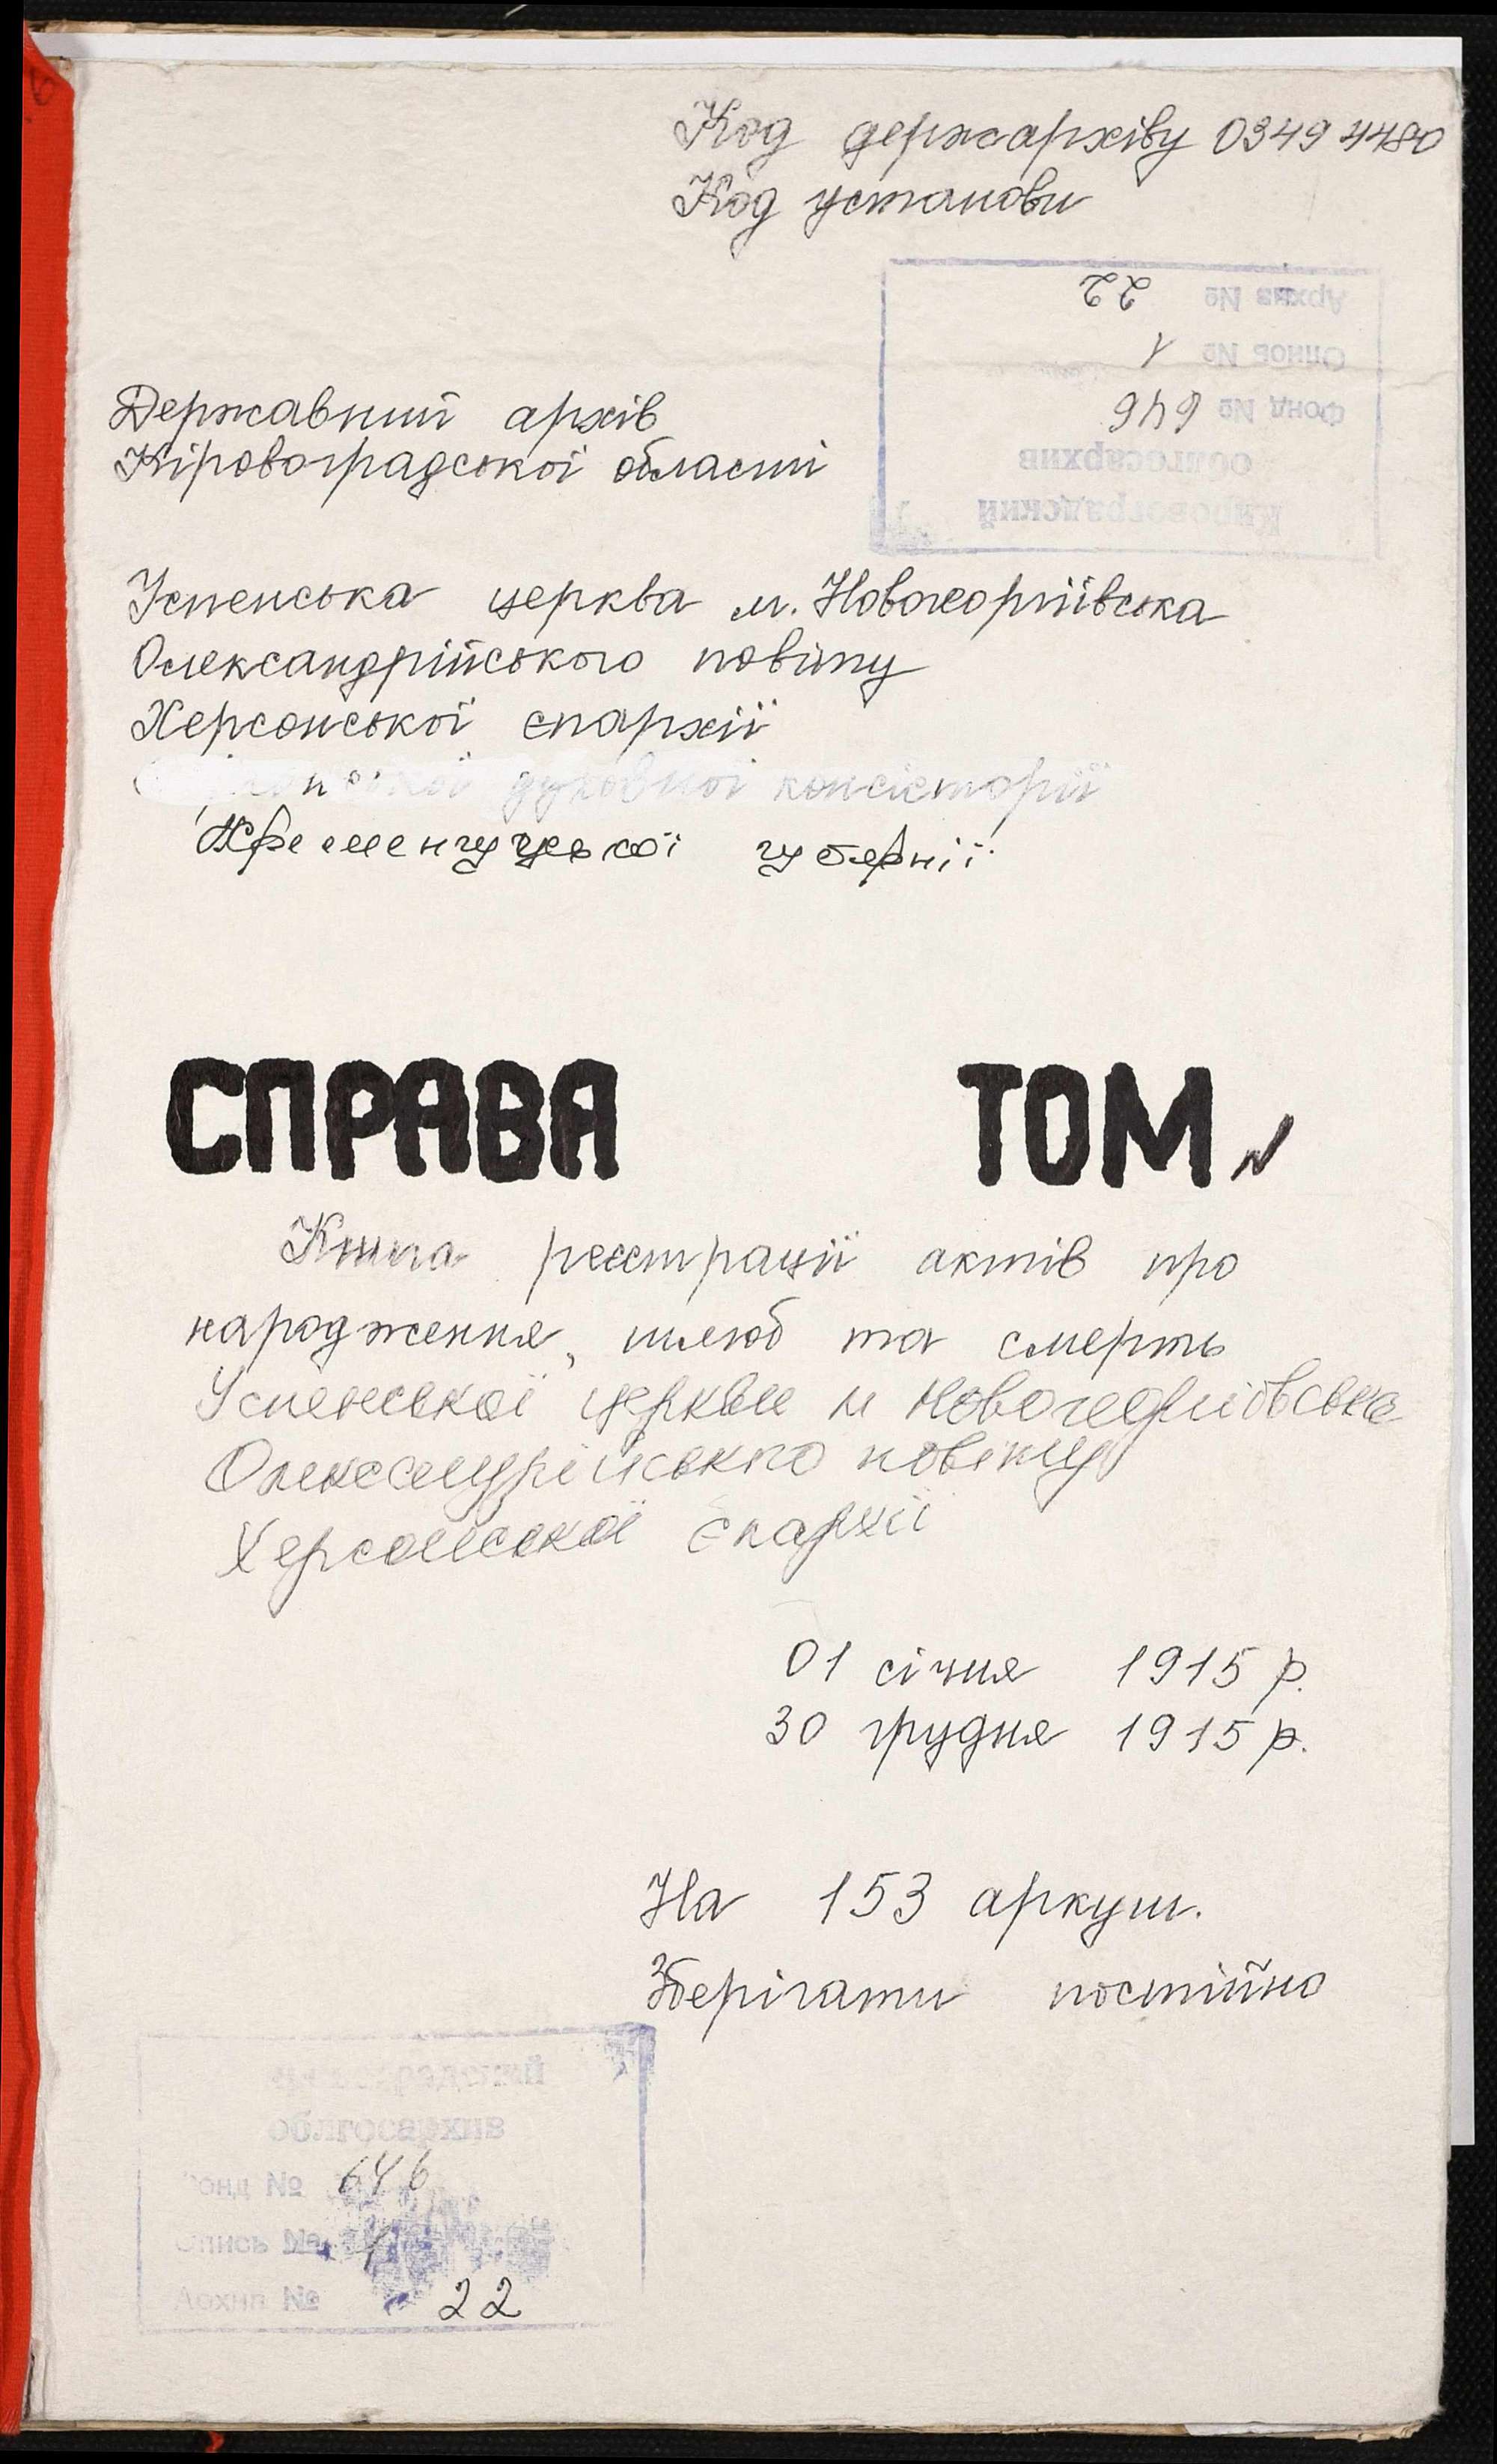 Код держархіву 03494480
Код установи
Архив № 22
Опись № 1
Фонд № 646
облгосархив
Кировоградский
Державний архів
Кіровоградської області
Успенська церква м. Новогеоргіївська
Олександрійського повіту
Херсонської єпархії
духовної консісторії
Кременчуцької губернії
СПРАВА ТОМ
Книга реєстрації актів про
народження, шлюб та смерть
Успенської церкви м Новогеоргіївська
Олександрійського повіту
Херсонської єпархії
01 січня 1915 р.
30 грудня 1915 р.
На 153 аркуш.
Зберігати постійно
облгосархив
Фонд № 646
Опись № 1
Архив № 22